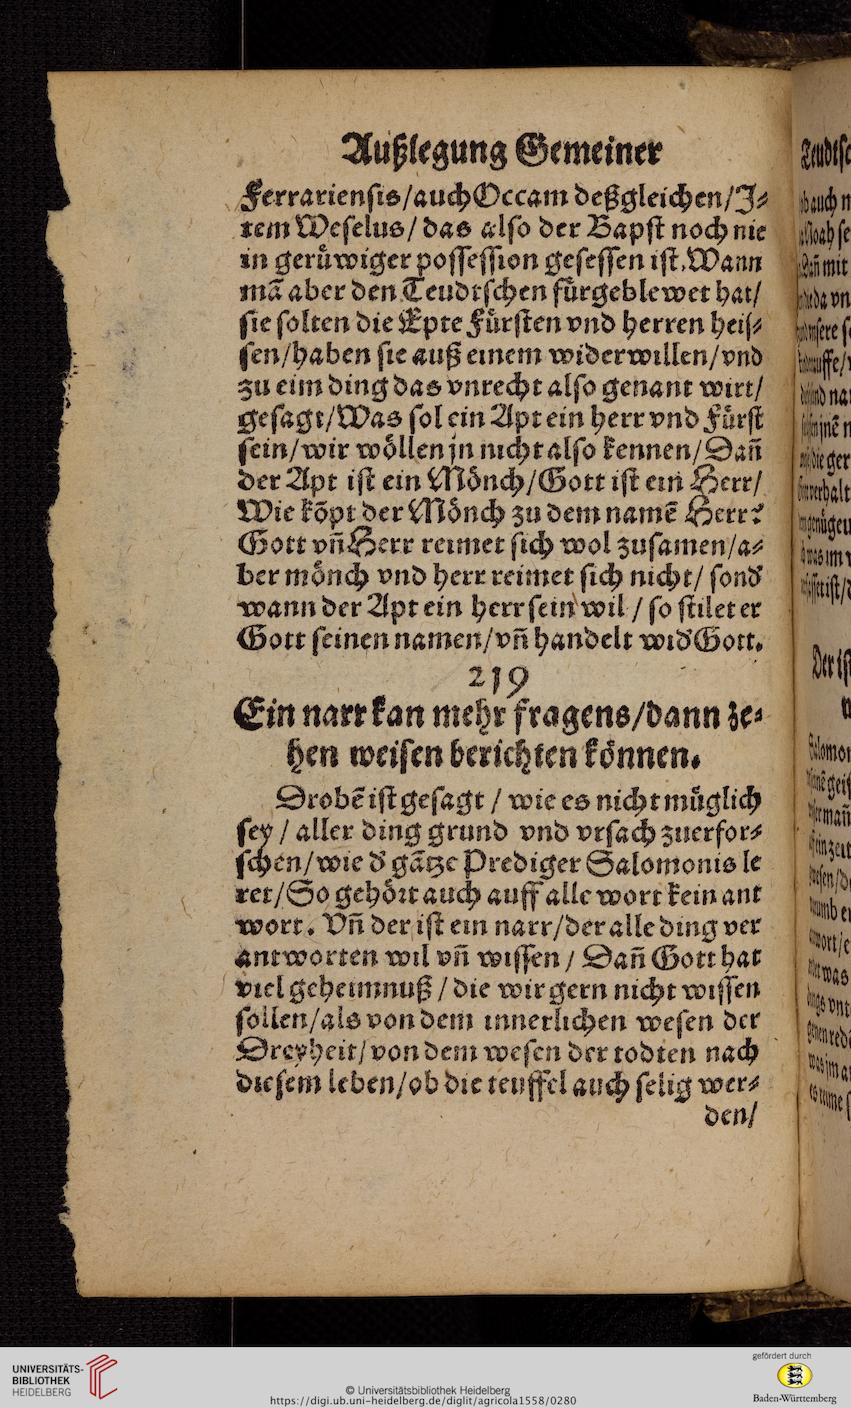 Außlegung Gemeiner
Ferrariensis/auch Occam deßgleichen/J⸗
tem Weselus/ das also der Bapst noch nie
in gerůwiger possession gesessen ist. Wann
mã aber den Teudtschen fürgeblewet hat/
sie solten die Epte Fürsten vnd herren heis⸗
sen/haben sie auß einem widerwillen/vnd
zu eim ding das vnrecht also genant wirt/
gesagt/Was sol ein Apt ein herr vnd Fürst
sein/wir wöllen jn nicht also kennen/Dañ
der Apt ist ein Mönch/Gott ist ein Herr/
Wie kõpt der Mönch zu dem namẽ Herr?
Gott vñ Herr reimet sich wol zusamen/a⸗
ber mönch vnd herr reimet sich nicht/ sond'
wann der Apt ein herr sein wil / so stilet er
Gott seinen namen/vñ handelt wid' Gott.
219
Ein narr kan mehr fragens/dann ze⸗
hen weisen berichten können.
Drobẽ ist gesagt / wie es nicht müglich
sey / aller ding grund vnd vrsach zuerfor⸗
schen/wie d' gãtze Prediger Salomonis le
ret/So gehört auch auff alle wort kein ant
wort. Vñ der ist ein narr/der alle ding ver
antworten wil vñ wissen / Dañ Gott hat
viel geheimnuß / die wir gern nicht wissen
sollen/als von dem innerlichen wesen der
Dreyheit/von dem wesen der todten nach
diesem leben/ob die teuffel auch selig wer⸗
den/
UNIVERSITÄTS-
BIBLIOTHEK
HEIDELBERG
© Universitätsbibliothek Heidelberg
https://digi.ub.uni-heidelberg.de/diglit/agricola1558/0280
gefördert durch
Baden-Württemberg